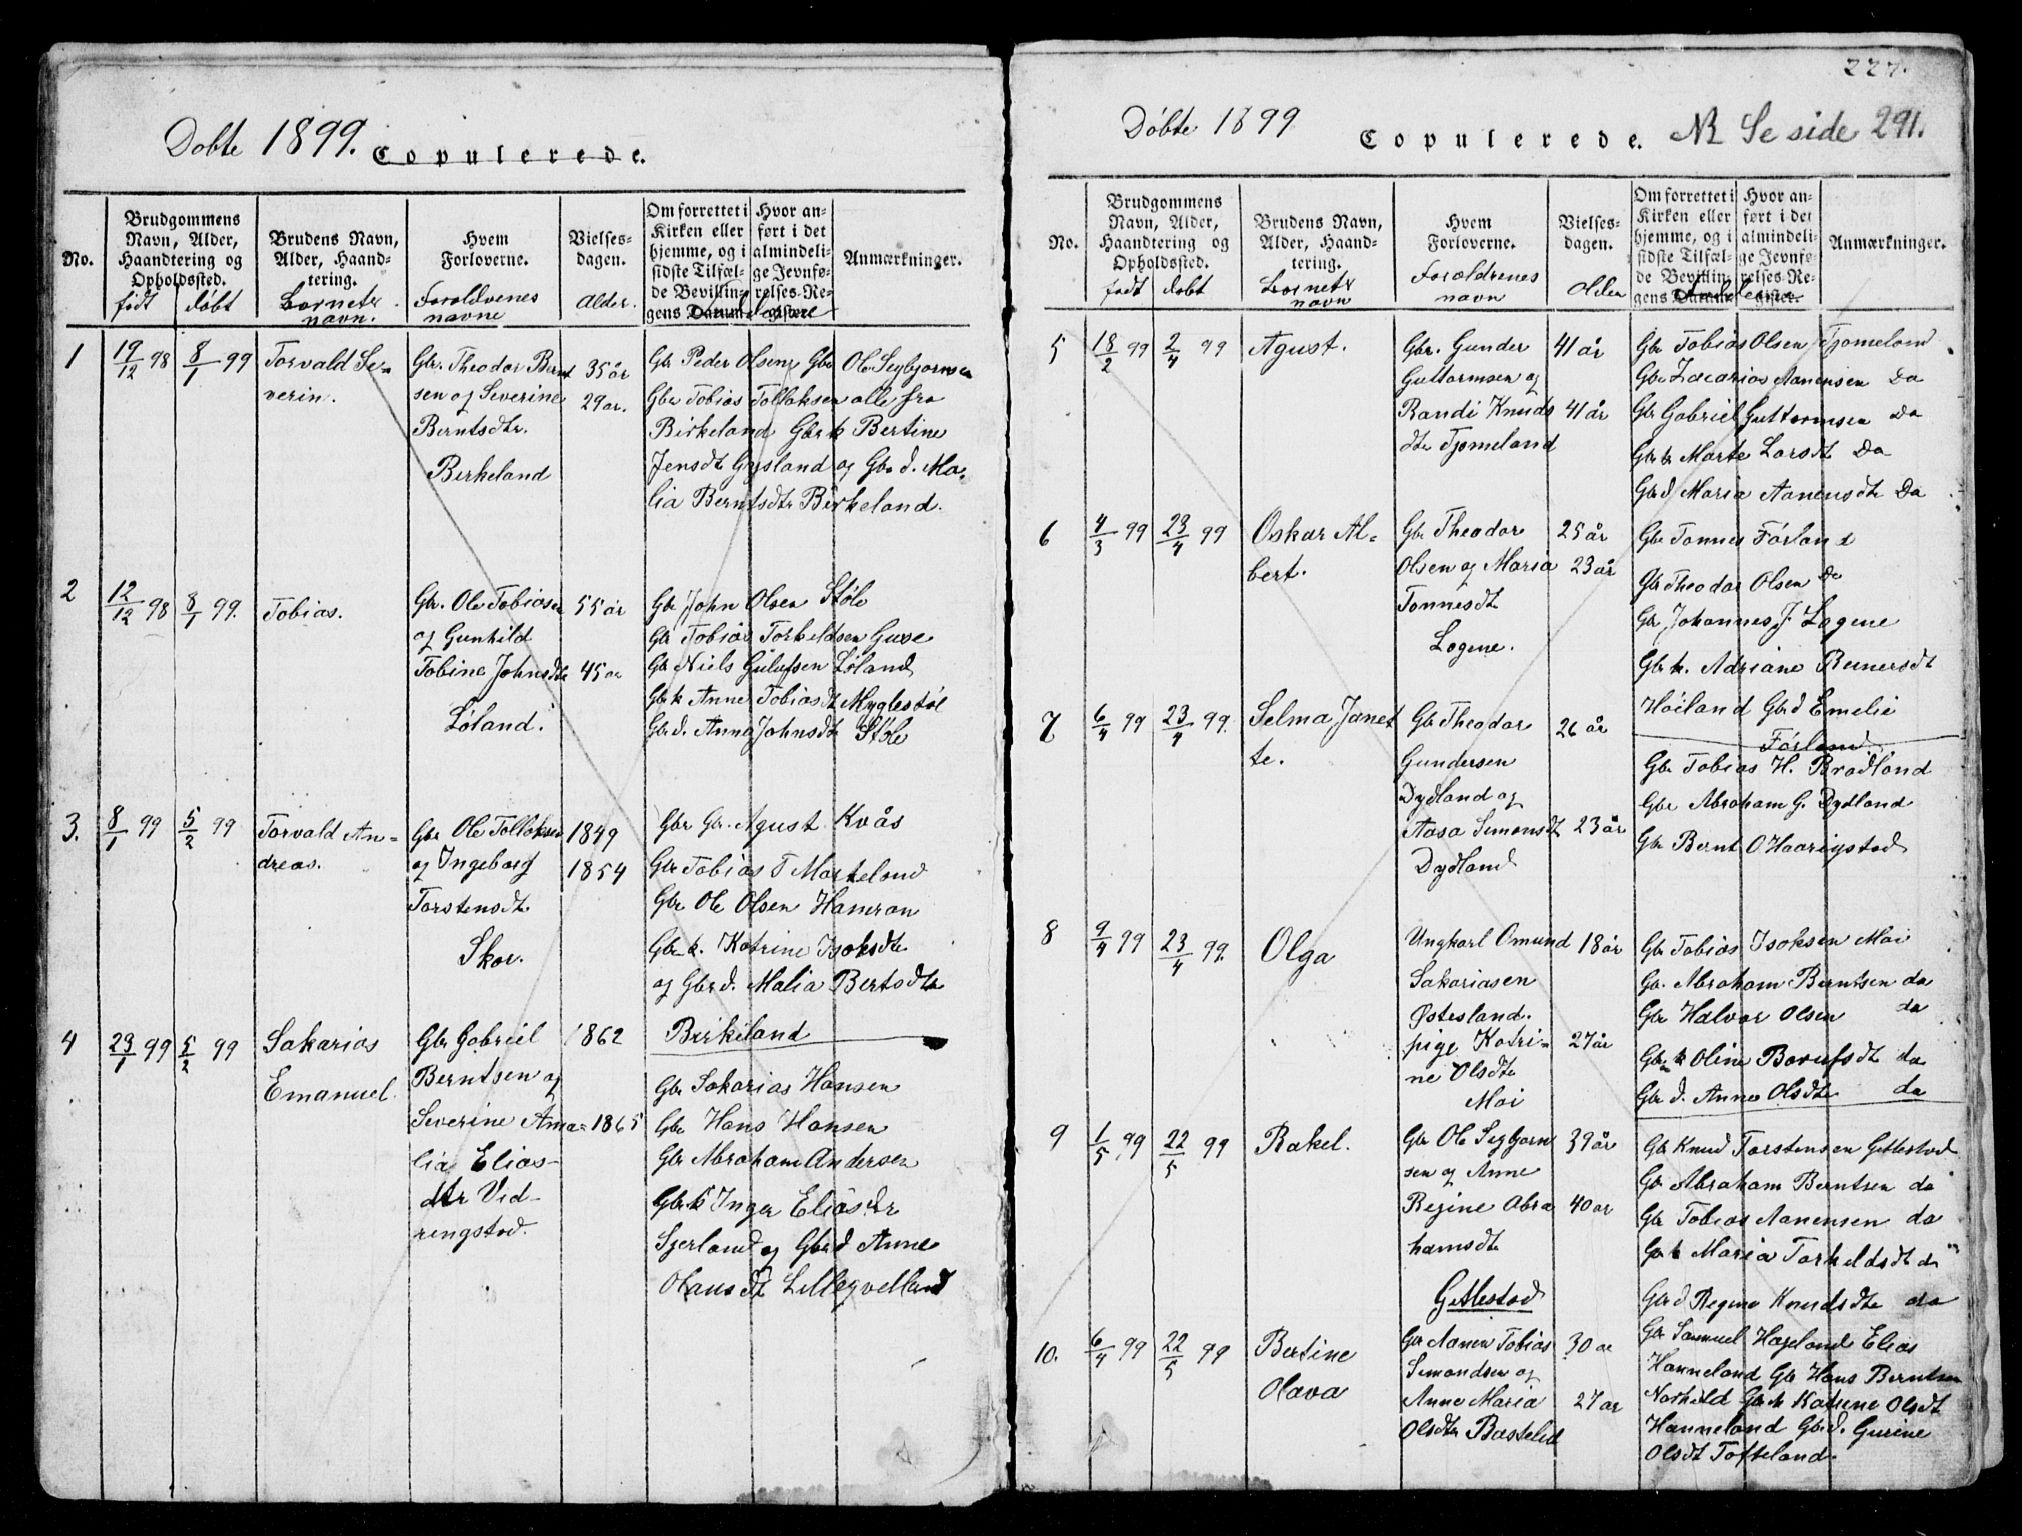 Døbte 1899. Copulerede.
No.
Brudgommens Navn, Alder, Haandtering og Opholdssted.
født døbt
Brudens Navn, Alder, Haandtering.
Barnets navn.
Hvem Forloverne.
Forældrenes navne
Vielsesdagen.
Alder.
Om forrettet i Kirken eller hjemme, og i sidste Tilfælde Bevillingens Datum.
Hvor anført i det almindelige Jevnførelses-Register.
Anmærkninger.
1 19/12 98 8/1 99 Torvald Se-
verin.
Gbr. Theodor Bernt
sen og Severine
Berntsdtr.
Birkeland
35 år
29 ar.
Gbr Peder Olsen Gbr Ole Segbjornsen
Gbr Tobias Tollaksen alle fra
Birkeland Gbr k Bertine
Jensdt Gysland og Gbr d. Ma-
lia Berntsdtr Birkeland.
2 12/12 98 8/1 99. Tobias.
Gbr. Ole Tobiasen
og Gunhild
Tobine Johnsdtr
Løland.
55 år
45 ar
Gbr John Olsen Støle
Gbr Tobias Torkeldsen Guse
Gbr Niels Gulufsen Løland
Gbr k Anne Tobiasdt Myglestøl
Gbr d. Anna Johnsdt Støle
3. 8/1 99 5/2 99 Torvald An-
dreas.
Gbr Ole Tollaksen
og Ingeborg
Torstensdt.
Skor.
1849
1854
Gbr Gr. Agust Kvås
Gbr Tobias T Moskeland
Gbr Ole Olsen Hamran
Gbr k. Katrine Isaksdtr
og Gbr d. Malia Bertsdtr
Birkeland
4 23/1 99 5/2 99 Sakarias
Emanuel.
Gbr Gabriel
Berntsen og
Severine Ama-
lia Elias-
dtr Vid-
ringstad.
1862
1865
Gbr Sakarias Hansen
Gbr Hans Hansen
Gbr Abraham Andersen
Gbr k Inger Eliasdr
Sjerland og Gbr d Anne
Olausdt Lillegvelland
227.
Døbte 1899 Copulerede. NB Se side 291.
No.
Brudgommens Navn, Alder, Haandtering og Opholdssted.
født døbt
Brudens Navn, Alder, Haandtering.
Barnets navn
Hvem Forloverne.
Forældrenes navn
Vielsesdagen.
Alder
Om forrettet i Kirken eller hjemme, og i sidste Tilfælde Bevillingens Datum.
Hvor anført i det almindelige Jevnførelses-Register.
Anmærkninger.
5 18/2 99 2/4 99 Agust.
Gbr. Gunder
Guttormsen og
Randi Knuds
dtr Tjomeland
41 år
41 år
Gbr Tobias Olsen Tjomeland
Gbr Zacarias Aanensen Do
Gbr Gabriel Guttormsen Do
Gbr k Marte Larsdt Do
Gbr d Maria Aanensdtr Do
6 4/3 99 23/4 99 Oskar Al-
bert.
Gbr Theodor
Olsen og Maria
Tonnesdt
Logene.
25 år
23 år
Gbr Tonnes Førland
Gbr Theodor Olsen Do
Gbr Johannes J. Logene
Gbr k. Adriane Reinersdt
Høiland Gbr d Emelie
Førland
7 6/4 99 23/4 99. Selma Janet
te.
Gbr Theodor
Gundersen
Dydland og
Aasa Simonsdt
Dydland
26 år
23 år
Gbr Tobias H. Brådland
Gbr Abraham G. Dydland
Gbr Bernt O Haarigstad
8 9/4 99 23/4 99. Olga
Ungkarl Omund
Sakariasen
Østesland.
pige Katri-
ne Olsdtr
Moi
18 år
27 år
Gbr Tobias Isaksen Moi
Gbr. Abraham Berntsen do
Gbr Halvor Olsen do
Gbr k Oline Borufsdt do
Gbr d. Anne Olsdtr do
9 1/5 99 22/5 99 Rakel.
Gbr Ole Segbjorn
sen og Anne
Regine Abra
hamsdtr
Getlestad
39 år
40 ar
Gbr Knud Torstensen Getlestad
Gbr Abraham Berntsen do
Gbr Tobias Aanensen do
Gbr k Maria Torkeldsdt do
Gbr d Regine Knudsdtr do
10. 6/4 99 22/5 99 Bertine
Olava
Gbr Aanen Tobias
Simondsen og
Anne Maria
Olsdtr Bastelid
30 ar
27 ar
Gbr Samuel Hægeland Elias
Hanneland Gbr Hans Berntsen
Gbr k Katrine Olsdt
Hanneland Gbr d. Gurine
Olsdt Tofteland.